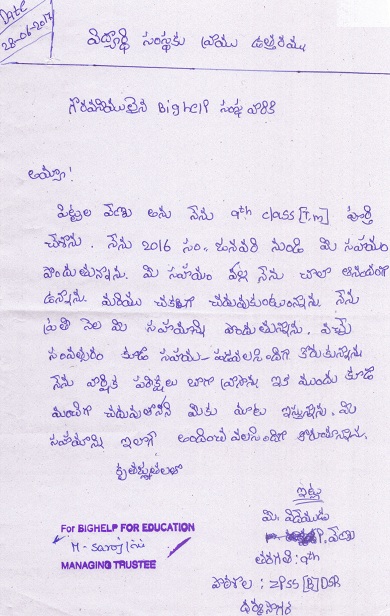 DATE
28-06-2017
విద్యార్థి సంస్థకు వ్రాయు ఉత్తరము
గౌరవనీయులైన Bighelp సంస్థ వారికి
అమ్మా!
పిట్టల వేణు అను నేను 9th class [T.m] పూర్తి
చేశాను. నేను 2016 సం.. జనవరి నుండి మీ సహయం
పొందుతున్నాను. మీ సహయం వల్ల నేను చాలా ఆనందంగా
ఉన్నాను. మరియు చక్కగా చదువుకుంటున్నాను. నేను
ప్రతి నెల మీ సహయాన్ని పొందుతున్నాను. వచ్చే
సంవత్సరం కూడా సహయ-పడవలసిందిగా కోరుకున్నాను
నేను వార్షిక పరిక్షలు బాగా వ్రాసాను ఇక ముందు కూడా
మంచిగా చదువుతానని మీకు మాట ఇస్తున్నాను. మీ
సహయాన్ని ఇలాగే అందించ వలసిందిగా కోరుచున్నాను.
కృతజ్ఞతలతో
ఇట్లు
మీ విధేయుడు
P. వేణు
తరగతి: 9th
పాఠశాల: ZPSS [B] DSR
ధర్మసాగర్
For BIGHELP FOR EDUCATION
M. Sarojini
MANAGING TRUSTEE